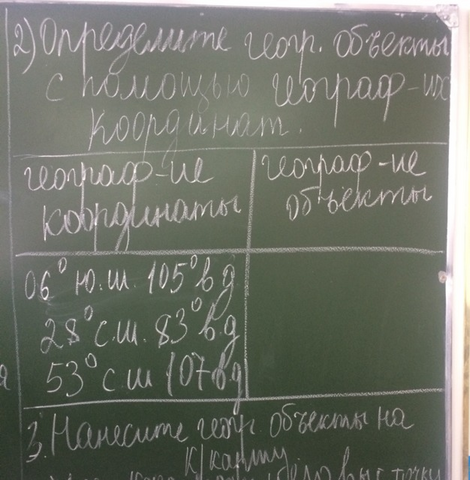 2) Определите геогр. объекты
с помощью географ-их
координат.
географ-ие
координаты
географ-ие
объекты
06° ю.ш. 105° в.д
28° с.ш. 83° в.д
53° с.ш 107 в.д
3. Нанесите геогр. объекты на
к/карту.